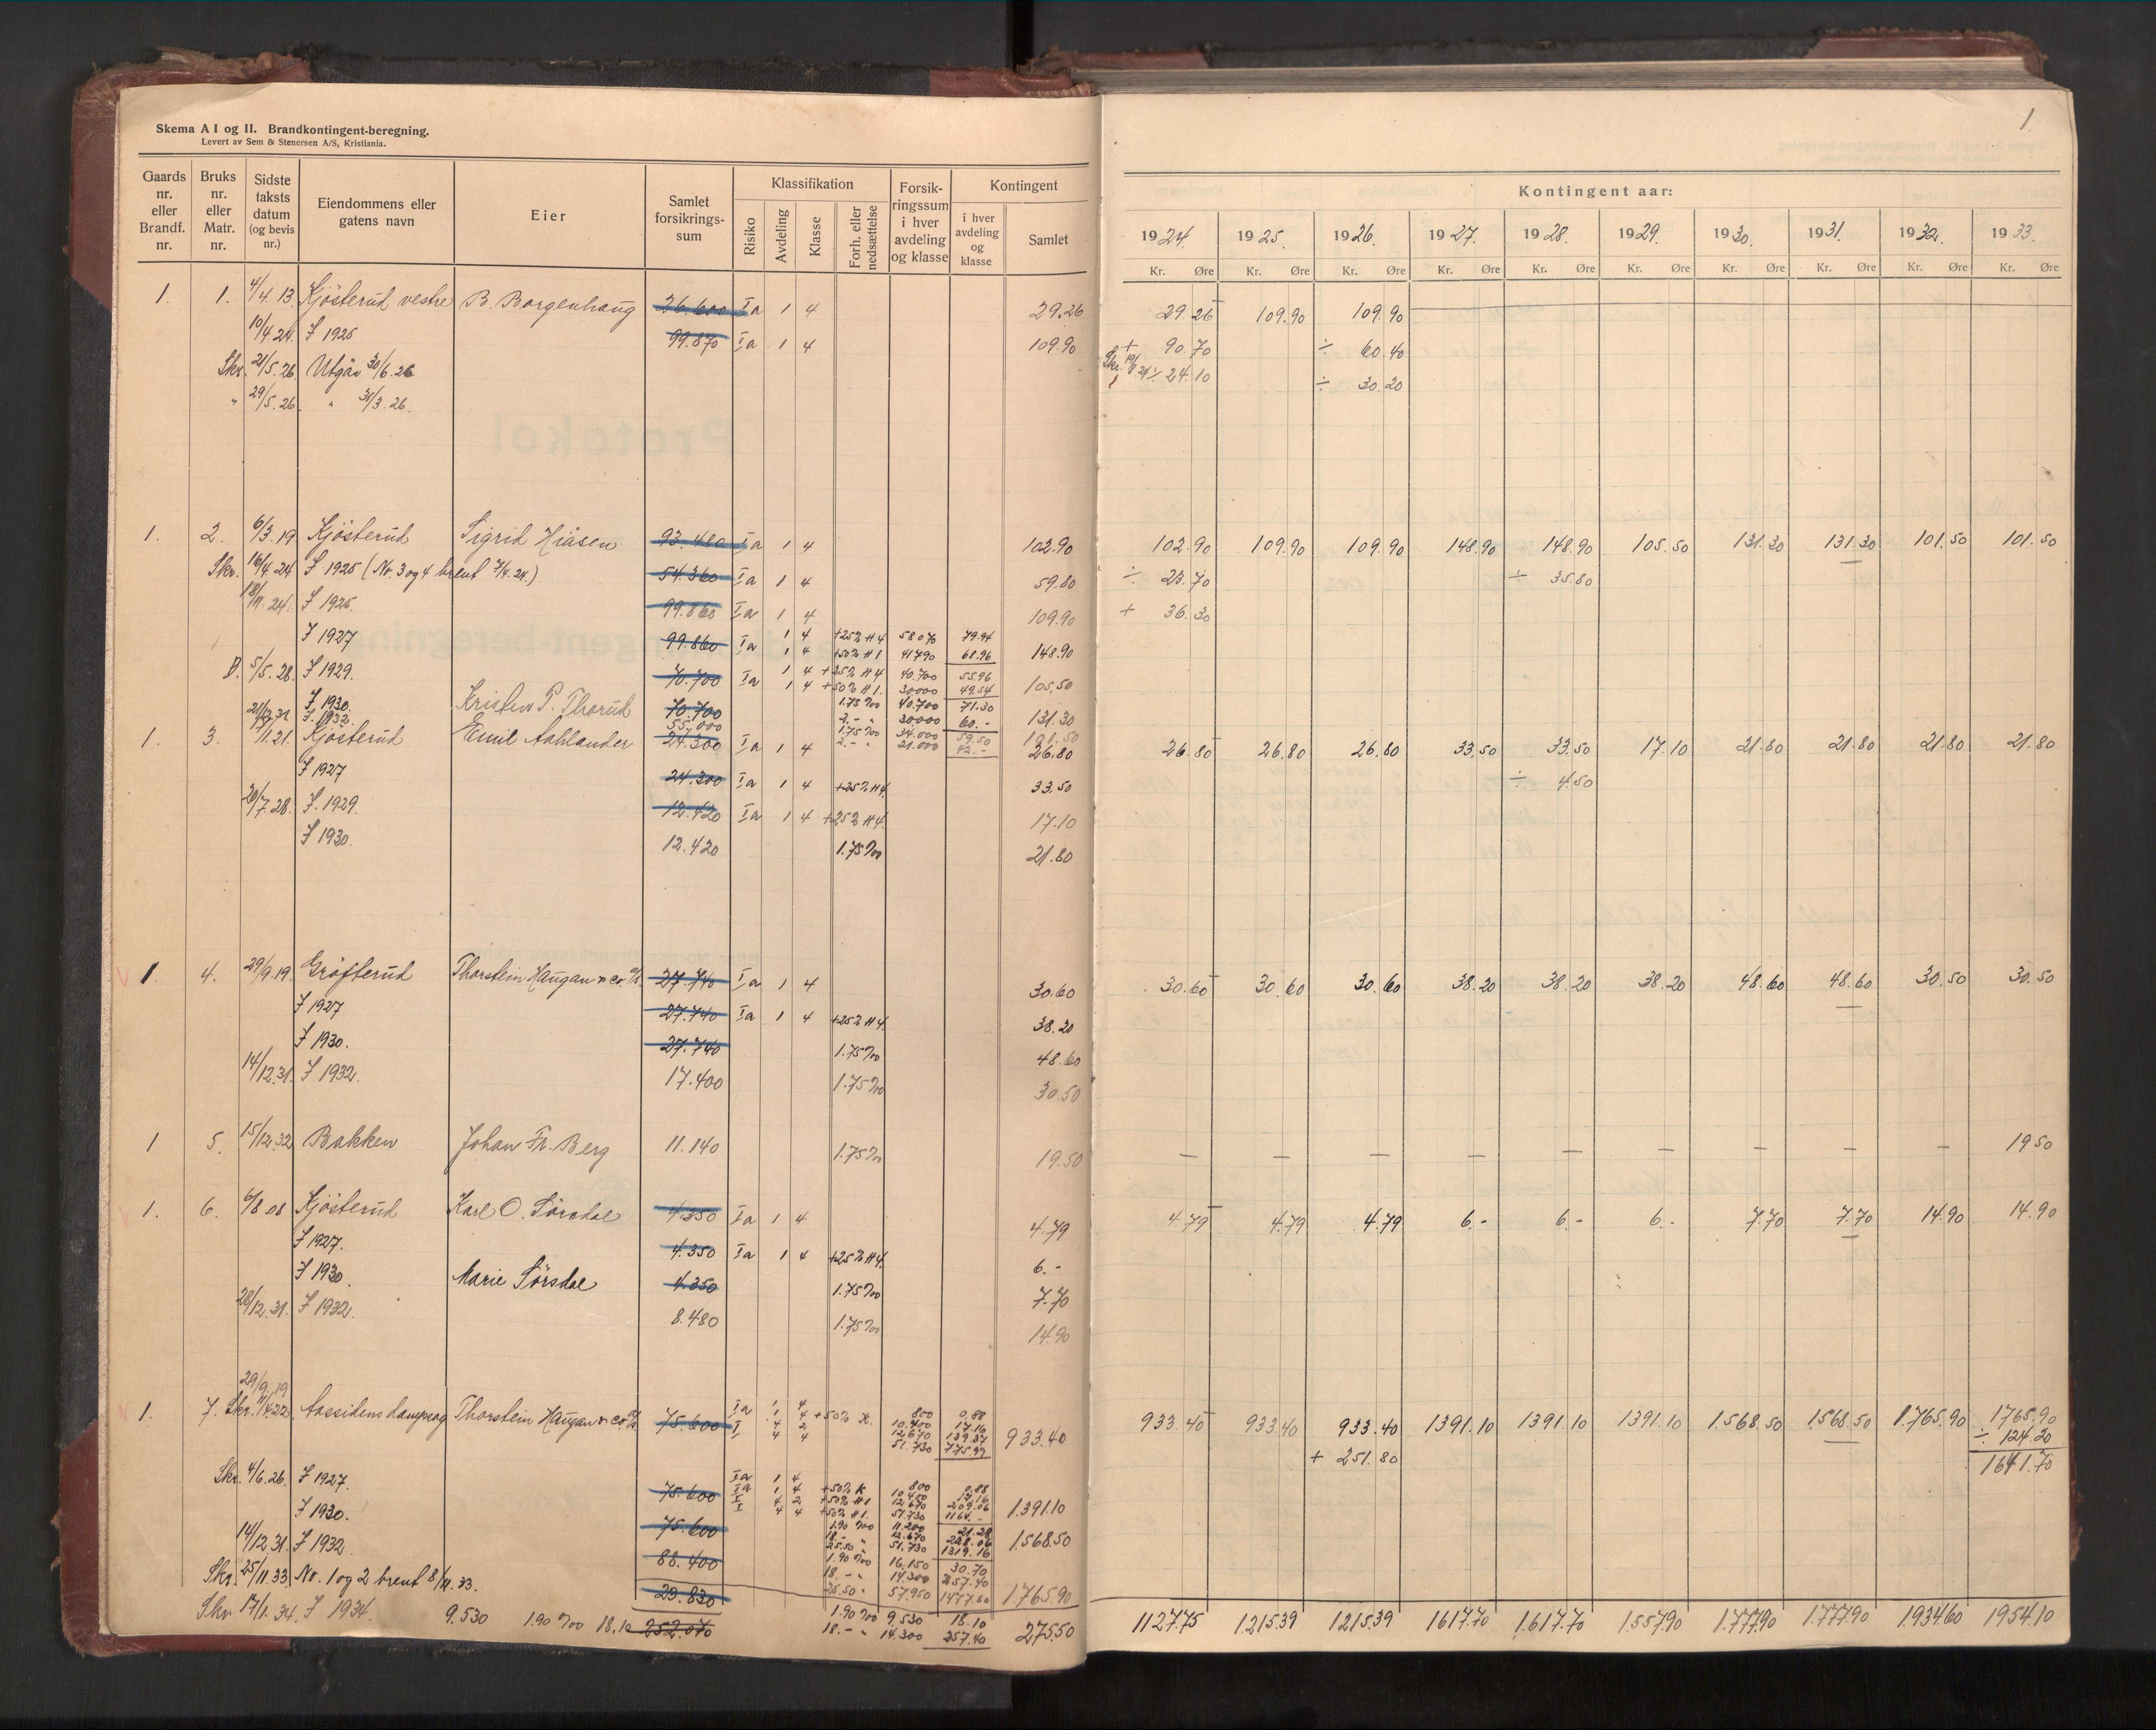 Skema A I og II. Brandkontingent-beregning.
Levert av Sem & Stenersen A/S, Kristiania.
1
Gaards nr. eller Brandf. nr.
Bruks nr. eller Matr. nr.
Sidste taksts datum (og bevis nr.)
Eiendommens eller gatens navn
Eier
Samlet forsikrings-sum
Klassifikation
Risiko
Avdeling
Klasse
Forh. eller nedsættelse
Forsik-ringssum i hver avdeling og klasse
Kontingent
i hver avdeling og klasse
Samlet
Kontingent aar:
1924. 1925. 1926. 1927. 1928. 1929. 1930. 1931. 1932. 1933.
Kr. Øre Kr. Øre Kr. Øre Kr. Øre Kr. Øre Kr. Øre Kr. Øre Kr. Øre Kr. Øre Kr. Øre
1. 1. 4/4.13. Kjösterud vestre B. Borgenhaug 26.600 Ia 1 4 29.26 29 26 109.90 109.90
10/4.24. F 1925 99.870 Ia 1 4 109.90 + 90.70 ÷ 60.40
Skr. 21/5.26. Utgår 30/6.26. ÷ 24.10 ÷ 30.20
" 29/5.26. " 31/3.26.
1. 2. 6/3.19 Kjösterud Sigrid Hiåsen 93.480 Ia 1 4 102.90 102.90 109.90 109.90 148.90 148.90 105.50 131.30 131.30 101.50 101.50
Skr. 16/4.24 F 1925 (No. 3 og 4 brent 7/4.24.) 54.360 Ia 1 4 59.80 ÷ 23.70 ÷ 35.80
18/11.24. F 1925. 99.860 Ia 1 4 109.90 + 36.30
F 1927 99.860 Ia 1 4 +25% H 4 58070 79.94
1 4 +50% H 1 41790 68.96 148.90
B. 5/5.28. F 1929. 70.700 Ia 1 4 +25% H 4 40.700 55.96
1 4 +50% H 1. 30000 49.54 105,50
F 1930. Kristen P. Thorud 70.700 1.75 ‰ 40.700 71.30
2.- " 30000 60.- 131.30
F. 1932. 55.000 1.75 ‰ 34.000 59.50 101.50
2.- " 21.000 42.-
1. 3. /11.21. Kjösterud Emil Aahlander 24.300 Ia 1 4 26.80 26.80 26.80 26.80 33.50 33.50 17.10 21.80 21.80 21.80 21.80
F 1927 24.300 Ia 1 4 +25% H 4. 33.50 ÷ 4.50
20/7.28. F. 1929. 12.420 Ia 1 4 +25% H 4. 17.10
F 1930. 12.420 1.75 ‰ 21.80
1. 4. 29/9.19 Gröfterud Thorstein Haugan & Co. 27.740 Ia 1 4 30.60 30.60 30.60 30.60 38.20 38.20 38.20 48.60 48.60 30.50 30.50
F 1927 27.740 Ia 1 4 +25% H 4. 38.20
F 1930. 27.740 1.75 ‰ 48.60
14/12.31. F 1932. 17.400 1.75 ‰ 30.50
1 5. 15/12.32 Bakken Johan Fr. Berg 11.140 1.75 ‰ 19.50 — — — — — — — — — 19 50
1. 6. 6/8 08 Kjösterud Karl O. Sörsdal 4.350 Ia 1 4 4.79 4.79 4.79 4.79 6.- 6.- 6.- 7.70 7.70 14.90 14.90
F 1927. 4.350 Ia 1 4 +25% H 4. 6.-
F 1930. Marie Sörsdal 4.350 1.75 ‰ 7.70
28/12.31. F 1932. 8.480 1.75 ‰ 14.90
29/9.19
1. 7. Skr. Aassidens dampsag Thorstein Haugan & Co. 75.600 Ia 1 4 800 0.88
4 +50% K. 10.400 17.16
I 4 2 12.670 139.37
4 4 51.730 775.99 933.40 933.40 933.40 933.40 1391.10 1391.10 1391.10 1.568.50 1568.50 1.765.90 1765.90
+ 251.80 ÷ 124.20
1641.70
Skr. 4/6.26. F 1927. 75.600 Ia 1 4 800 0.88
Ia 1 4 +50% K 10.400 17.16
I 4 2 +50% H 1 12.670 209.06
I 4 4 +50% H 1. 51.730 1164.- 1.391.10
F 1930. 75.600 1.90 ‰ 11.200 21.28
18.- 12.670 228.06
25.50 " 51.730 1319.16 1.568.50
14/12.31. F 1932. 88.400 1.90 ‰ 16.150 30.70
18.- " 14.300 257.40
25.50 " 57.950 1477.80 1765.90
Skr. 25/11.33. No. 1 og 2 brent 8/11.33. 23.830 1.90 ‰ 9.530 18.10
18.- " 14.300 257.40 275.50
Skr. 17/1.34. F 1934. 9.530 1.90 ‰ 18.10 252.070
1127.75 1.215.39 1.215.39 1617.70 1.617.70 1.557.90 1.777.90 1.777.90 1.934.60 1954.10